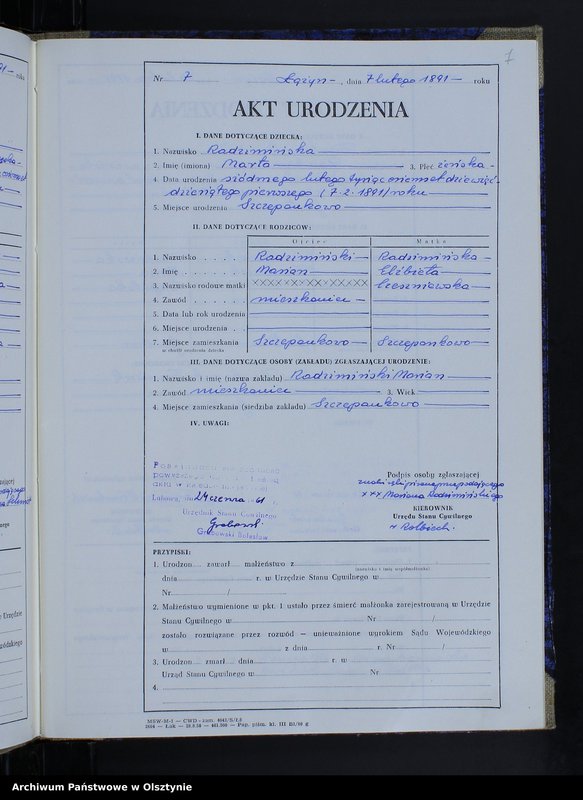 7
Nr 7 dnia 7 lutego 1891 — roku
AKT URODZENIA
I. DANE DOTYCZĄCE DZIECKA:
1. Nazwisko Radzimińska
2. Imię (imiona) Marta 3. Płeć żeńska
4. Data urodzenia siódmego lutego tysiąc osiemset dziewięć-
dziesiątego pierwszego (7.2.1891) roku
5. Miejsce urodzenia Szczepankowo
II. DANE DOTYCZĄCE RODZICÓW:
Ojciec Matka
1. Nazwisko Radzimiński Radzimińska
2. Imię Marian Elżbieta
3. Nazwisko rodowe matki XXXXXXXXXXXX
4. Zawód mieszkaniec
5. Data lub rok urodzenia
6. Miejsce urodzenia
7. Miejsce zamieszkania Szczepankowo Szczepankowo
w chwili urodzenia dziecka
III. DANE DOTYCZĄCE OSOBY (ZAKŁADU) ZGŁASZAJĄCEJ URODZENIE:
1. Nazwisko i imię (nazwa zakładu) Radzimiński Marian
2. Zawód mieszkaniec 3. Wiek
4. Miejsce zamieszkania (siedziba zakładu) Szczepankowo
IV. UWAGI:
Podpis osoby zgłaszającej
+++ Mariana Radzimińskiego
Lubawa, dnia 24 czerwca 61 r.
KIEROWNIK
Urzędu Stanu Cywilnego
Urzędnik Stanu Cywilnego
Grabowski Bolesław
PRZYPISKI:
1. Urodzon zawarł małżeństwo z
(nazwisko i imię współmałżonka)
dnia r. w Urzędzie Stanu Cywilnego w
Nr /
2. Małżeństwo wymienione w pkt. 1 ustało przez śmierć małżonka zarejestrowaną w Urzędzie
Stanu Cywilnego w Nr /
zostało rozwiązane przez rozwód — unieważnione wyrokiem Sądu Wojewódzkiego
w z dnia r. Nr /
3. Urodzon zmarł dnia r. w
Urząd Stanu Cywilnego w Nr
4.
Archiwum Państwowe w Olsztynie